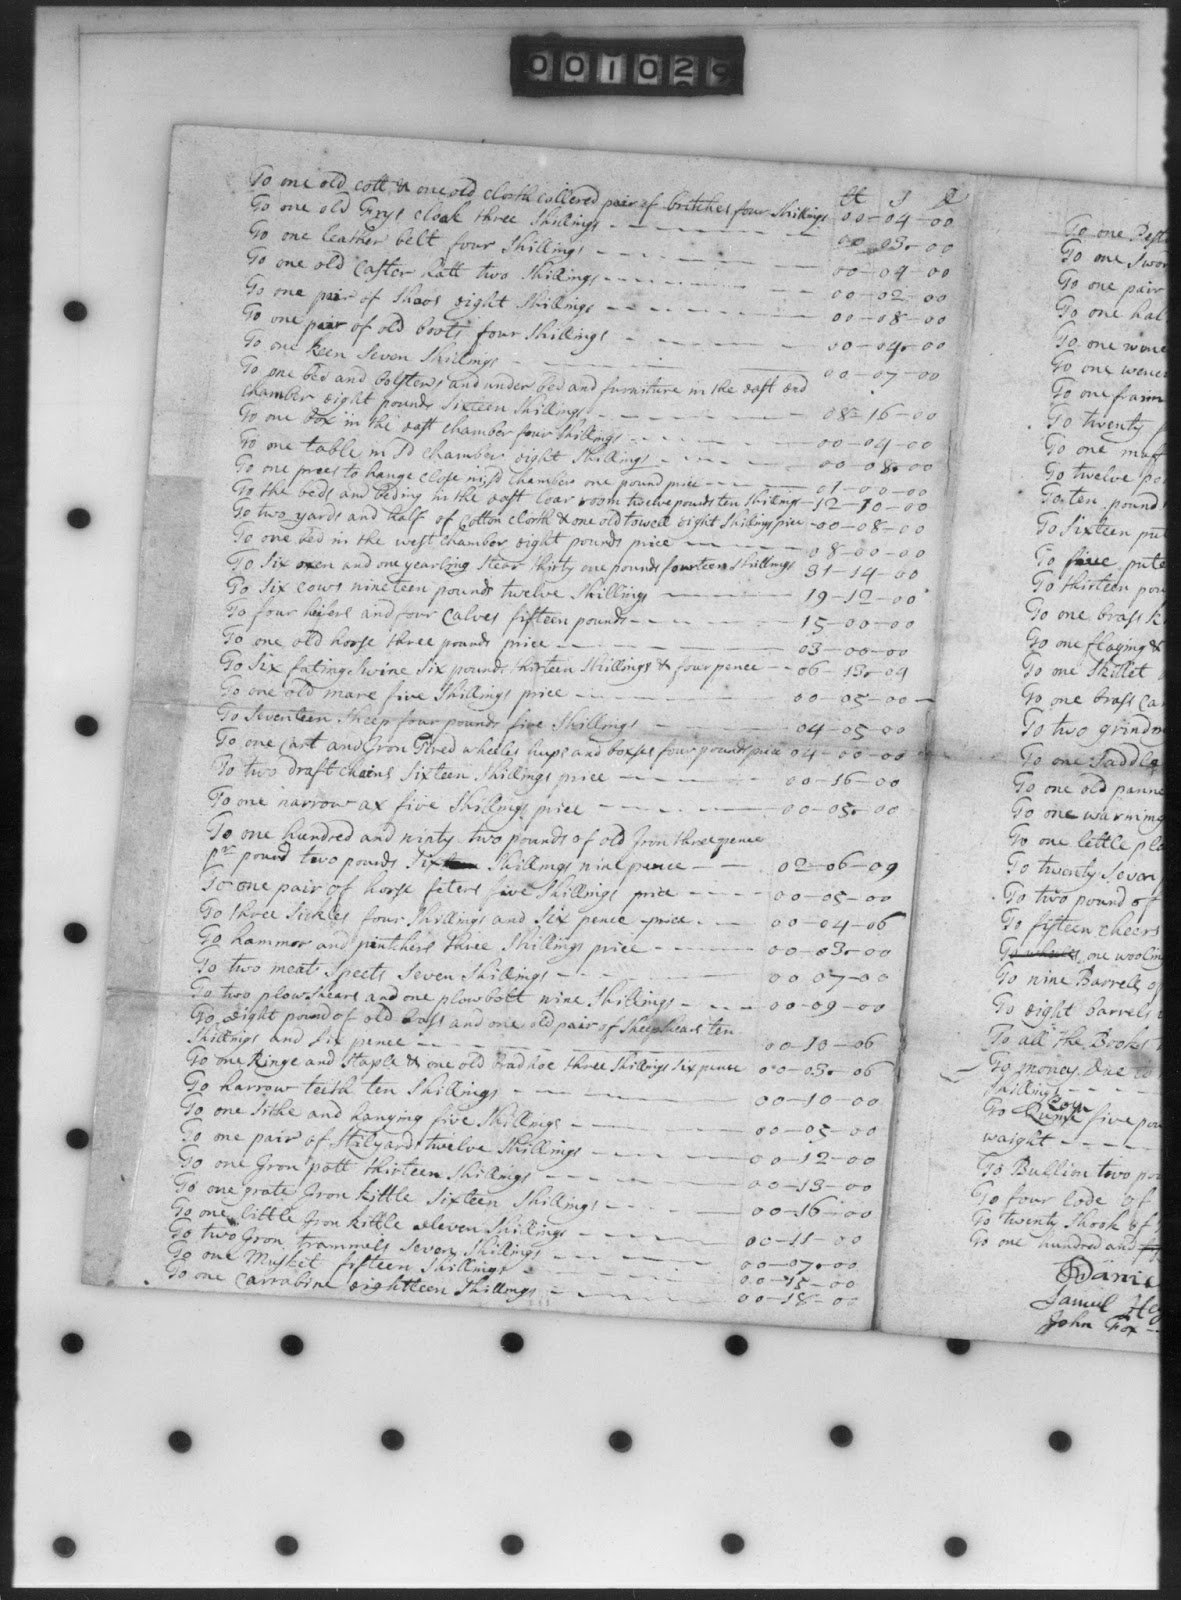 001029
£ S D
To one old cott & one old cloth collered pair of britches four Shillings 00-04-00
To one old Grys cloak three Shillings 00-03-00
To one leather belt four Shillings 00-04-00
To one old Caster hatt two Shillings 00-02-00
To one pair of Shoos eight Shillings 00-08-00
To one pair of old boots four Shillings 00-04-00
To one keen Seven Shillings 00-07-00
To one bed and bolsters and under bed and furniture in the east end
chamber eight pounds Sixteen Shillings 08-16-00
To one box in the east chamber four Shillings 00-04-00
To one table in sd chamber eight Shillings 00-08-00
To one prees to hange close in sd chamber one pound price 01-00-00
To the beds and beding in the east loar room twelve pounds ten Shillings 12-10-00
To two yards and half of Cotton cloth & one old towell eight Shillings price 00-08-00
To one bed in the west chamber eight pounds price 08-00-00
To Six oxen and one yearling Stear thirty one pounds fourteen Shillings 31-14-00
To Six cows nineteen pounds twelve Shillings 19-12-00
To four heifers and four calves fifteen pounds 15-00-00
To one old horse three pounds price 03-00-00
To Six fating Swine Six pounds thirteen Shillings & four pence 06 13-04
To one old mare five Shillings price 00-05-00
To Seventeen Sheep four pounds five Shillings 04-05-00
To one Cart and Iron Tired wheeles hups and boxses four pounds price 04-00-00
To two draft chains Sixteen Shillings price 00-16-00
To one narrow ax five Shillings price 00-05-00
To one hundred and ninty two pounds of old Iron three pence
pr pound two pounds Six Shillings nine pence 02-06-09
To one pair of horse feters five Shillings price 00-05-00
To three Sickles four Shillings and Six pence price 00-04-06
To hammor and pintchers three Shillings price 00-03-00
To two meat Speets Seven Shillings 00 07-00
To two plow Shears and one plow bolt nine Shillings 00-09-00
To eight pound of old brass and one old pair of Sheep Shears ten
Shillings and Six pence 00-10-06
To one Ringe and Staple & one old Bradhoe three Shillings Six pence 00-03-06
To harrow teeth ten Shillings 00-10-00
To one Sithe and hanging five Shillings 00-05-00
To one pair of Stilyards twelve Shillings 00-12-00
To one Iron pott thirteen Shillings 00-13-00
To one grate Iron kittle Sixteen Shillings 00-16-00
To one little Iron kittle eleven Shillings 00-11-00
To two Iron trammels Seven Shillings 00-07-00
To one Musket fifteen Shillings 00-15-00
To one Carrabine eighteen Shillings 00-18-00
To one
To one Swor
To one pair
To one hal
To one
To one
To one fraim
To twenty
To one
To twelve po
To ten pound
To Sixteen
To five
To thirteen pou
To one brass k
To one flaging &
To one Skillet
To one brass ca
To two grindst
To one Saddle
To one old panne
To one warming
To one little pla
To twenty Seven
To two pound of
To fifteen cheers
To wheeles one wooling
To nine Barrels of
To eight barrels
To all the Books
To money Due to
Shilling
To Coyn five pou
waight
To Bullion two po
To four lode of
To twenty Shook of
To one hundred and
Danie
Samuel
John Fox